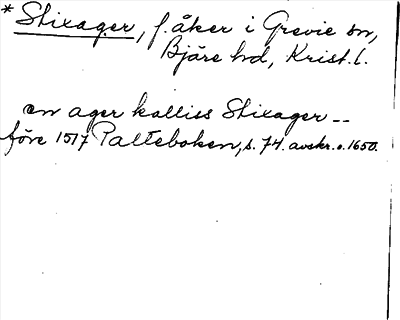 * Stixager, f. åker i Grevie sn,
Bjäre hd, Krist. l.
en ager kalliss Stixager --
före 1517 Palteboken, s. 74. avskr. o. 1650.